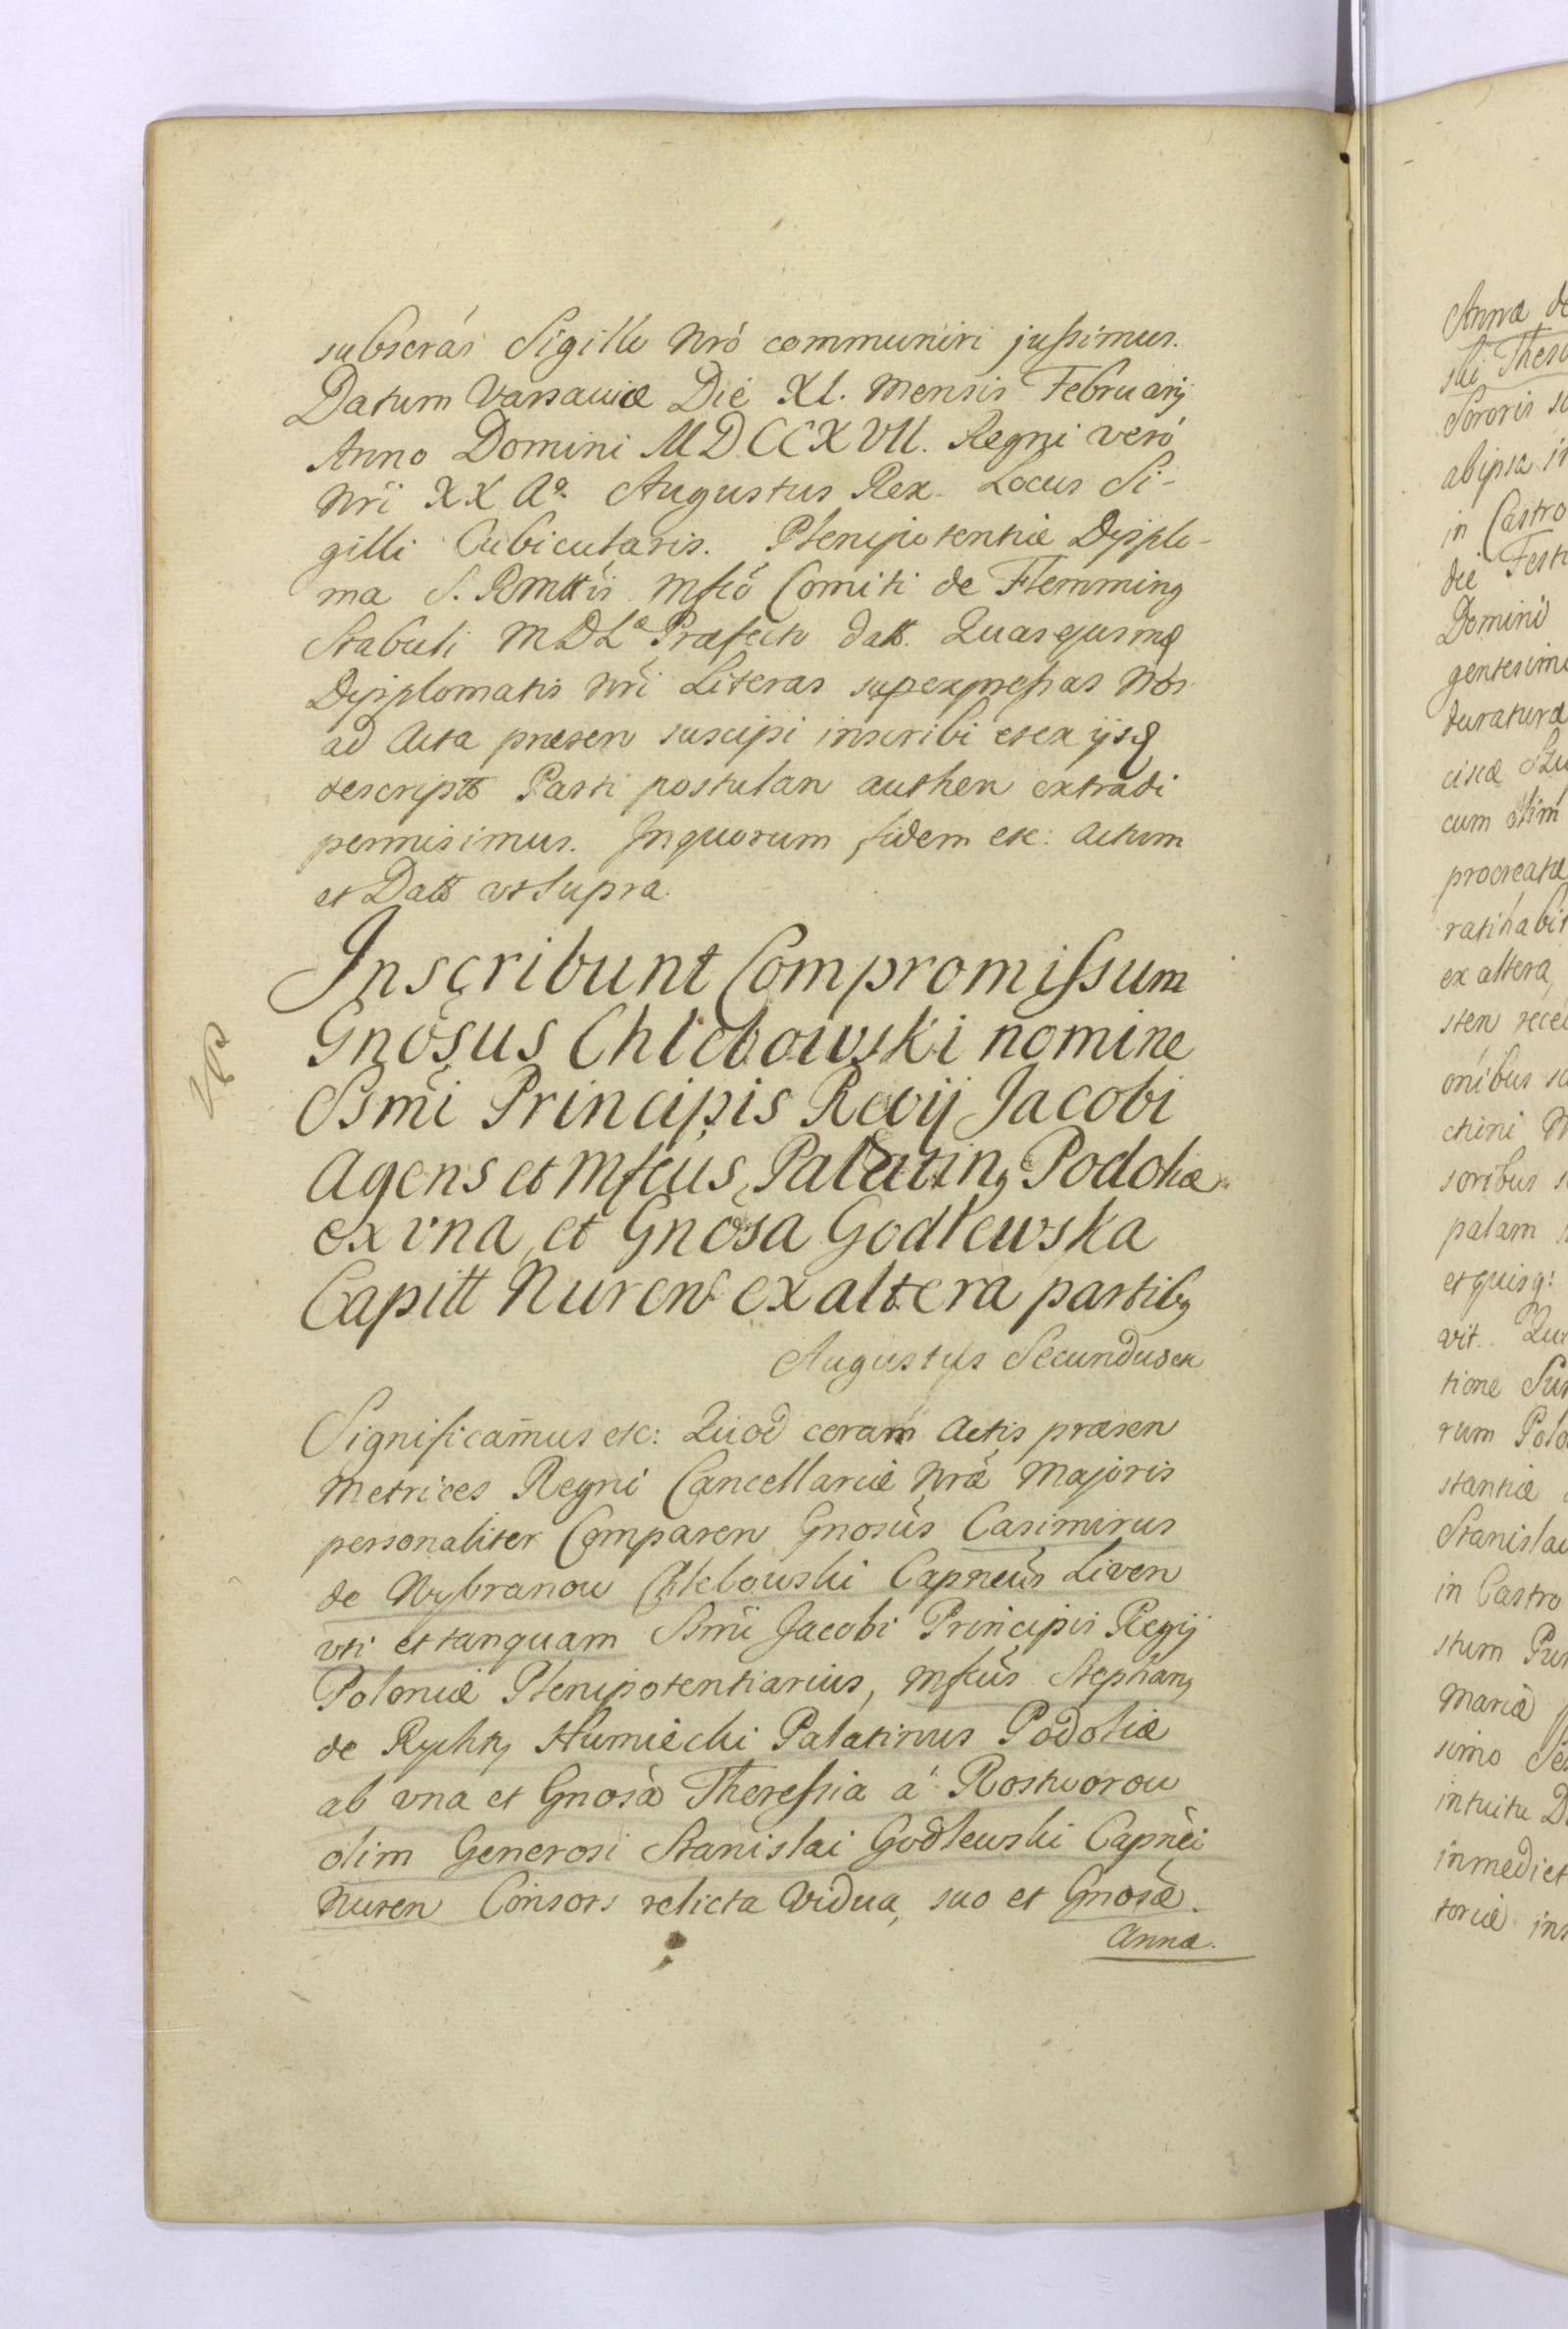 subscrás Sigillo Nró communiri jussimus.
Datum Varsaviæ Die XI. Mensis Februarij
Anno Domini MDCCXVII. Regni veró
Nri XX Aº. Augustus Rex. Locus Si-
gilli Cubicularis. Plenipotentiæ Dyplo-
ma S. RMttis Mfco Comiti de Flemming
Stabuli MDLæ Præfecto datt. Quasejusmq
Dyplomatis Nri Literas supexpressas Nos
ad Acta præsen suscipi inscribi etex ijsq
descriptt Parti postulan authen extradi
permisimus. Inquorum fidem etc: Actum
et Datt vtSupra.
Inscribunt Compromissum
Gnosus Chlebowski nomine
Ssmi Principis Regij Jacobi
Agens et Mfcus Palatin9 Podoliæ
ex vna, et Gnosa Godlewska
Capitt Nuren ex altera partib9
Augustus Secundus etc
Significamus etc: Quod coram Actis præsen
Metrices Regni Cancellariæ Nræ Majoris
personaliter Comparen Gnosus Casimirus
de Wybranow Chlebowski Capneus Liven
vti ettanquam Ssmi Jacobi Principis Regij
Poloniæ Plenipotentiarius, Mfcus Stephan9
de Rychty Humiecki Palatinus Podoliæ
ab vna et Gnosa Theressia á Rostworow
olim Generosi Stanislai Godlewski Capnei
Nuren Consors relicta Vidua, suo et Gnosæ.
Annæ.
Annæ
Sororis
abipsa
in Castro
die
Domini
duraturæ
cum olim
procreatæ
ex altera,
sten
onibus
soribus
palam
et quisq:
vit.
tione
rum
stantiæ
in Castro
stum
Mariæ
simo
intuitu
toriæ